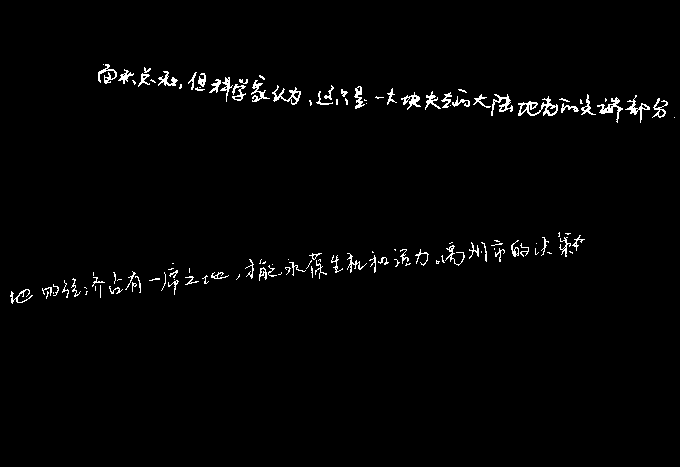 面积总和,但科学家认为,这只是一大块失去的大陆地壳的尖端部分.
地的经济占有一席之地,才能永葆生机和活力。禹州市的决策